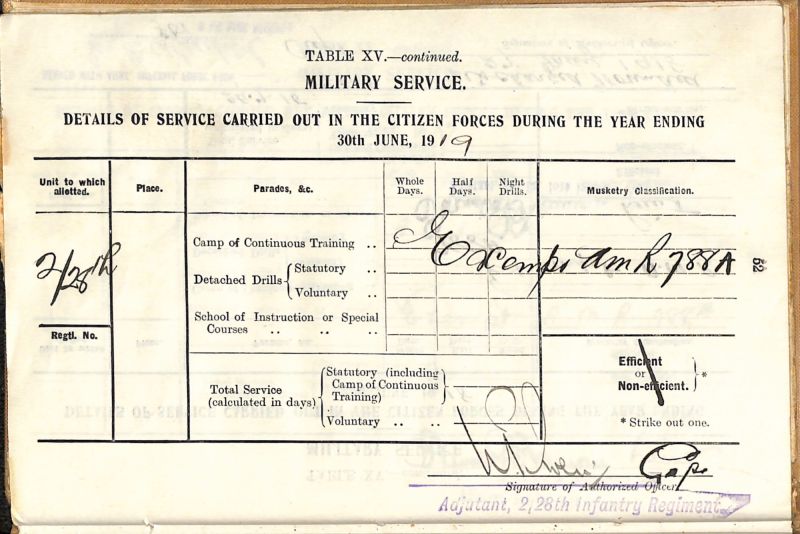 TABLE XV.—continued.
MILITARY SERVICE.
DETAILS OF SERVICE CARRIED OUT IN THE CITIZEN FORCES DURING THE YEAR ENDING
30th JUNE, 1919
Unit to which allotted.
Place.
Parades, &c.
Whole Days.
Half Days.
Night Drills.
Musketry Classification.
2/28th
Camp of Continuous Training ..
Exempt AMR 788A
Detached Drills
Statutory ..
Voluntary ..
52
School of Instruction or Special
Courses .. .. ..
Regtl. No.
Total Service
(calculated in days)
Statutory (including
Camp of Continuous
Training)
Voluntary .. ..
Efficient
or
Non-efficient.
*
* Strike out one.
Capt
Signature of Authorized Officer.
Adjutant, 2/28th Infantry Regiment